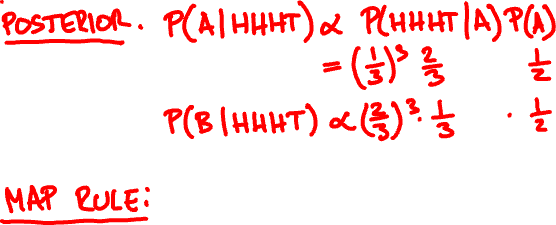 POSTERIOR. P(A|HHHT) ∝ P(HHHT|A) P(A)
= (1/3)³ 2/3 1/2
P(B|HHHT) ∝ (2/3)³ · 1/3 · 1/2
MAP RULE: